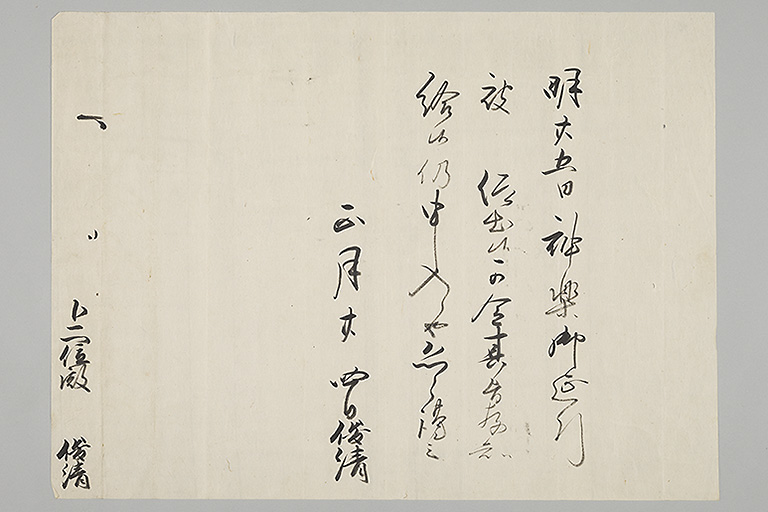 明廿五日神楽御延引
被 仰出候可令其旨存知
給候仍申入候也恐々謹言
正月廿四日俊清
卜二位殿 俊清